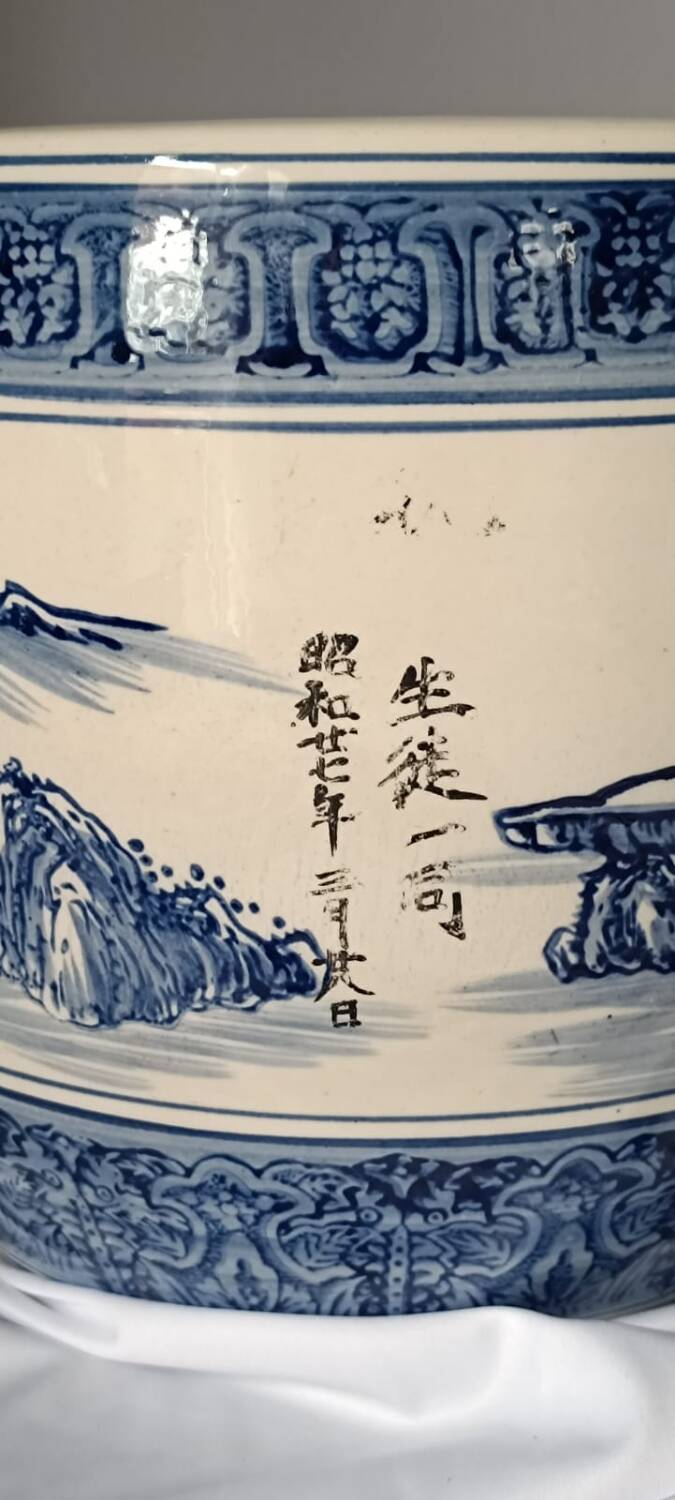 生徒一同
昭和廿七年三月廿八日